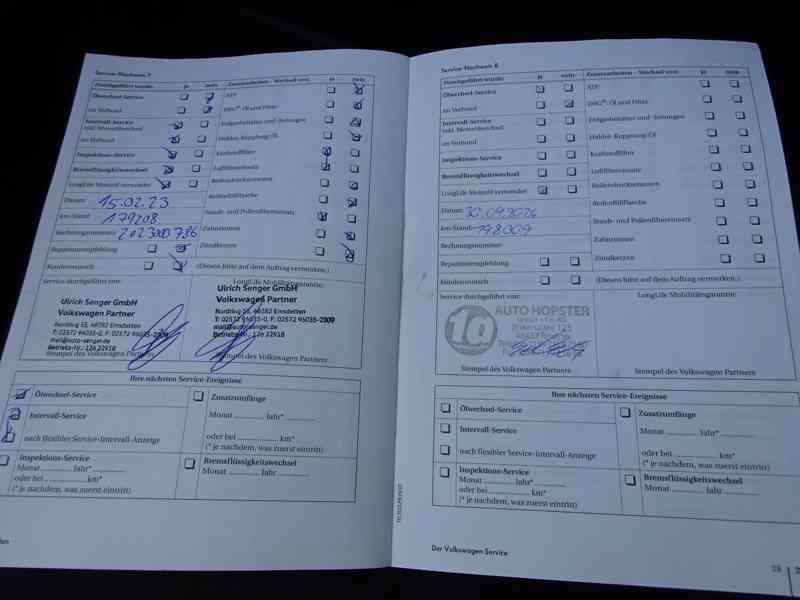 Service-Nachweis 7
Durchgeführt wurde: ja nein Zusatzarbeiten – Wechsel von: ja nein
Ölwechsel-Service ATF
im Verbund DSG®-Öl und Filter
Intervall-Service
inkl. Motorölwechsel
im Verbund Haldex-Kupplung/Öl
Inspektions-Service Kraftstofffilter
Bremsflüssigkeitswechsel Luftfiltereinsatz
LongLife Motoröl verwendet Reifendrucksensoren
Datum: 15.02.23 Reifenfüllflasche
km-Stand: 179208 Staub- und Pollenfiltereinsatz
Rechnungsnummer: Zahnriemen
Reparaturempfehlung Zündkerzen
Kundenwunsch (Diesen bitte auf dem Auftrag vermerken.)
Service durchgeführt von: LongLife Mobilitätsgarantie:
Ulrich Senger GmbH
Volkswagen Partner
Nordring 55, 48282 Emsdetten
T: 02572 96035-0, F: 02572 96035-2909
mail@auto-senger.de
Betriebs-Nr.: 126 22918
Stempel des Volkswagen Partners
Ulrich Senger GmbH
Volkswagen Partner
Nordring 55, 48282 Emsdetten
T: 02572 96035-0, F: 02572 96035-2909
mail@auto-senger.de
Betriebs-Nr.: 126 22918
Stempel des Volkswagen Partners
Ihre nächsten Service-Ereignisse
Ölwechsel-Service Zusatzumfänge
Intervall-Service Monat Jahr*
nach flexibler Service-Intervall-Anzeige oder bei km*
(* je nachdem, was zuerst eintritt)
Inspektions-Service Bremsflüssigkeitswechsel
Monat Jahr* Monat Jahr
oder bei km*
(* je nachdem, was zuerst eintritt)
Service-Nachweis 8
Durchgeführt wurde: ja nein Zusatzarbeiten – Wechsel von: ja nein
Ölwechsel-Service ATF
im Verbund DSG®-Öl und Filter
Intervall-Service Erdgasbehälter und -leitungen
inkl. Motorölwechsel
im Verbund Haldex-Kupplung/Öl
Inspektions-Service Kraftstofffilter
Bremsflüssigkeitswechsel Luftfiltereinsatz
LongLife Motoröl verwendet Reifendrucksensoren
Datum: 30.09.2024 Reifenfüllflasche
km-Stand: 198009 Staub- und Pollenfiltereinsatz
Rechnungsnummer: Zahnriemen
Reparaturempfehlung Zündkerzen
Kundenwunsch (Diesen bitte auf dem Auftrag vermerken.)
Service durchgeführt von: LongLife Mobilitätsgarantie:
1a AUTO HOPSTER
Stempel des Volkswagen Partners Stempel des Volkswagen Partners
Ihre nächsten Service-Ereignisse
Ölwechsel-Service Zusatzumfänge
Intervall-Service Monat Jahr*
nach flexibler Service-Intervall-Anzeige oder bei km*
(* je nachdem, was zuerst eintritt)
Inspektions-Service Bremsflüssigkeitswechsel
Monat Jahr* Monat Jahr
oder bei km*
(* je nachdem, was zuerst eintritt)
Der Volkswagen Service